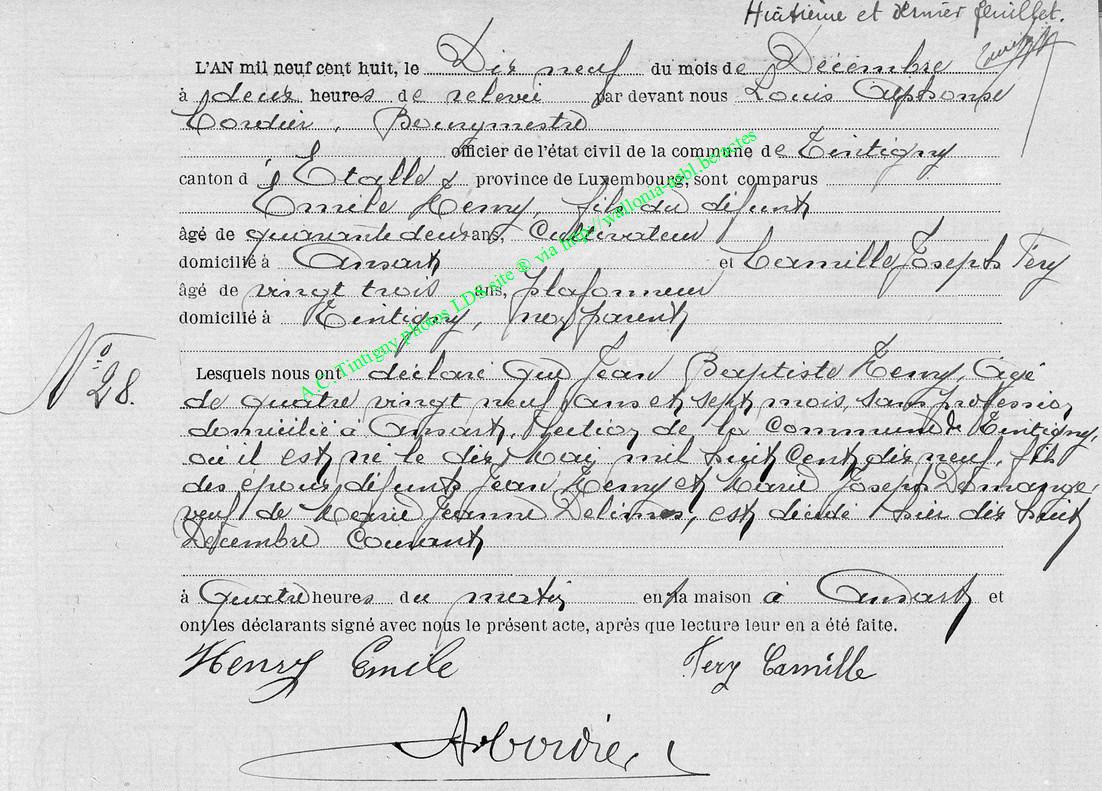 Huitième et dernier feuillet.
L'AN mil neuf cent huit, le Dix neuf du mois de Décembre
à deux heures de relevée par devant nous Louis Alphonse
Cordier, Bourgmestre
officier de l'état civil de la commune de Tintigny
canton d'Etalle, province de Luxembourg, sont comparus
Emile Henry, fils du défunt
âgé de quarante deux ans, Cultivateur
domicilié à Ansart et Camille Joseph Fery
âgé de vingt trois ans, plafonneur
domicilié à Tintigny, non parent
N° 28.
Lesquels nous ont déclaré que Jean Baptiste Henry, âgé
de quatre vingt neuf ans et sept mois, sans profession
domicilié à Ansart, section de la Commune de Tintigny,
où il est né le dix Mai mil huit cent dix neuf, fils
des époux défunts Jean Henry et Marie Joseph Demange,
veuf de Marie Jeanne, est décédé hier dix huit
Décembre Courant
à Quatre heures du matin en sa maison à Ansart et
ont les déclarants signé avec nous le présent acte, après que lecture leur en a été faite.
Henry Emile Fery Camille
A. Cordier
A.C. Tintigny photos LDS site ® via http://wallonia-asbl.be/actes